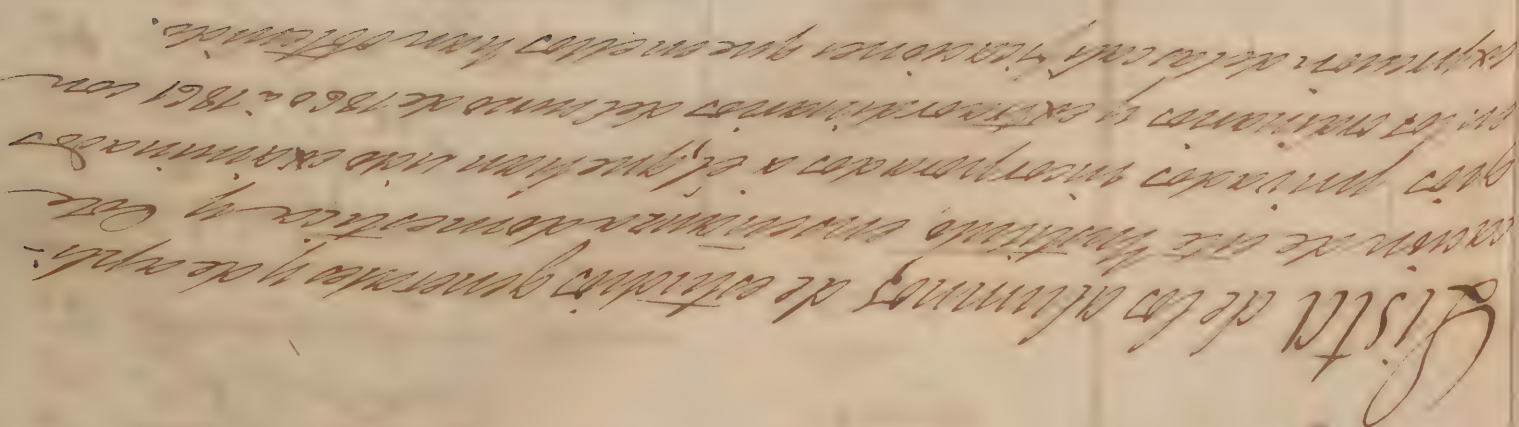 Lista de los alumnos de estudios generales y de apli-
cacion de este Instituto enseñanza domestica y Cole
gios privados incorporados a el, que han sido examinados
en los ordinarios y extraordinarios del curso de 1860 á 1861 con
expresion de las calificaciones que en ellos han obtenido.